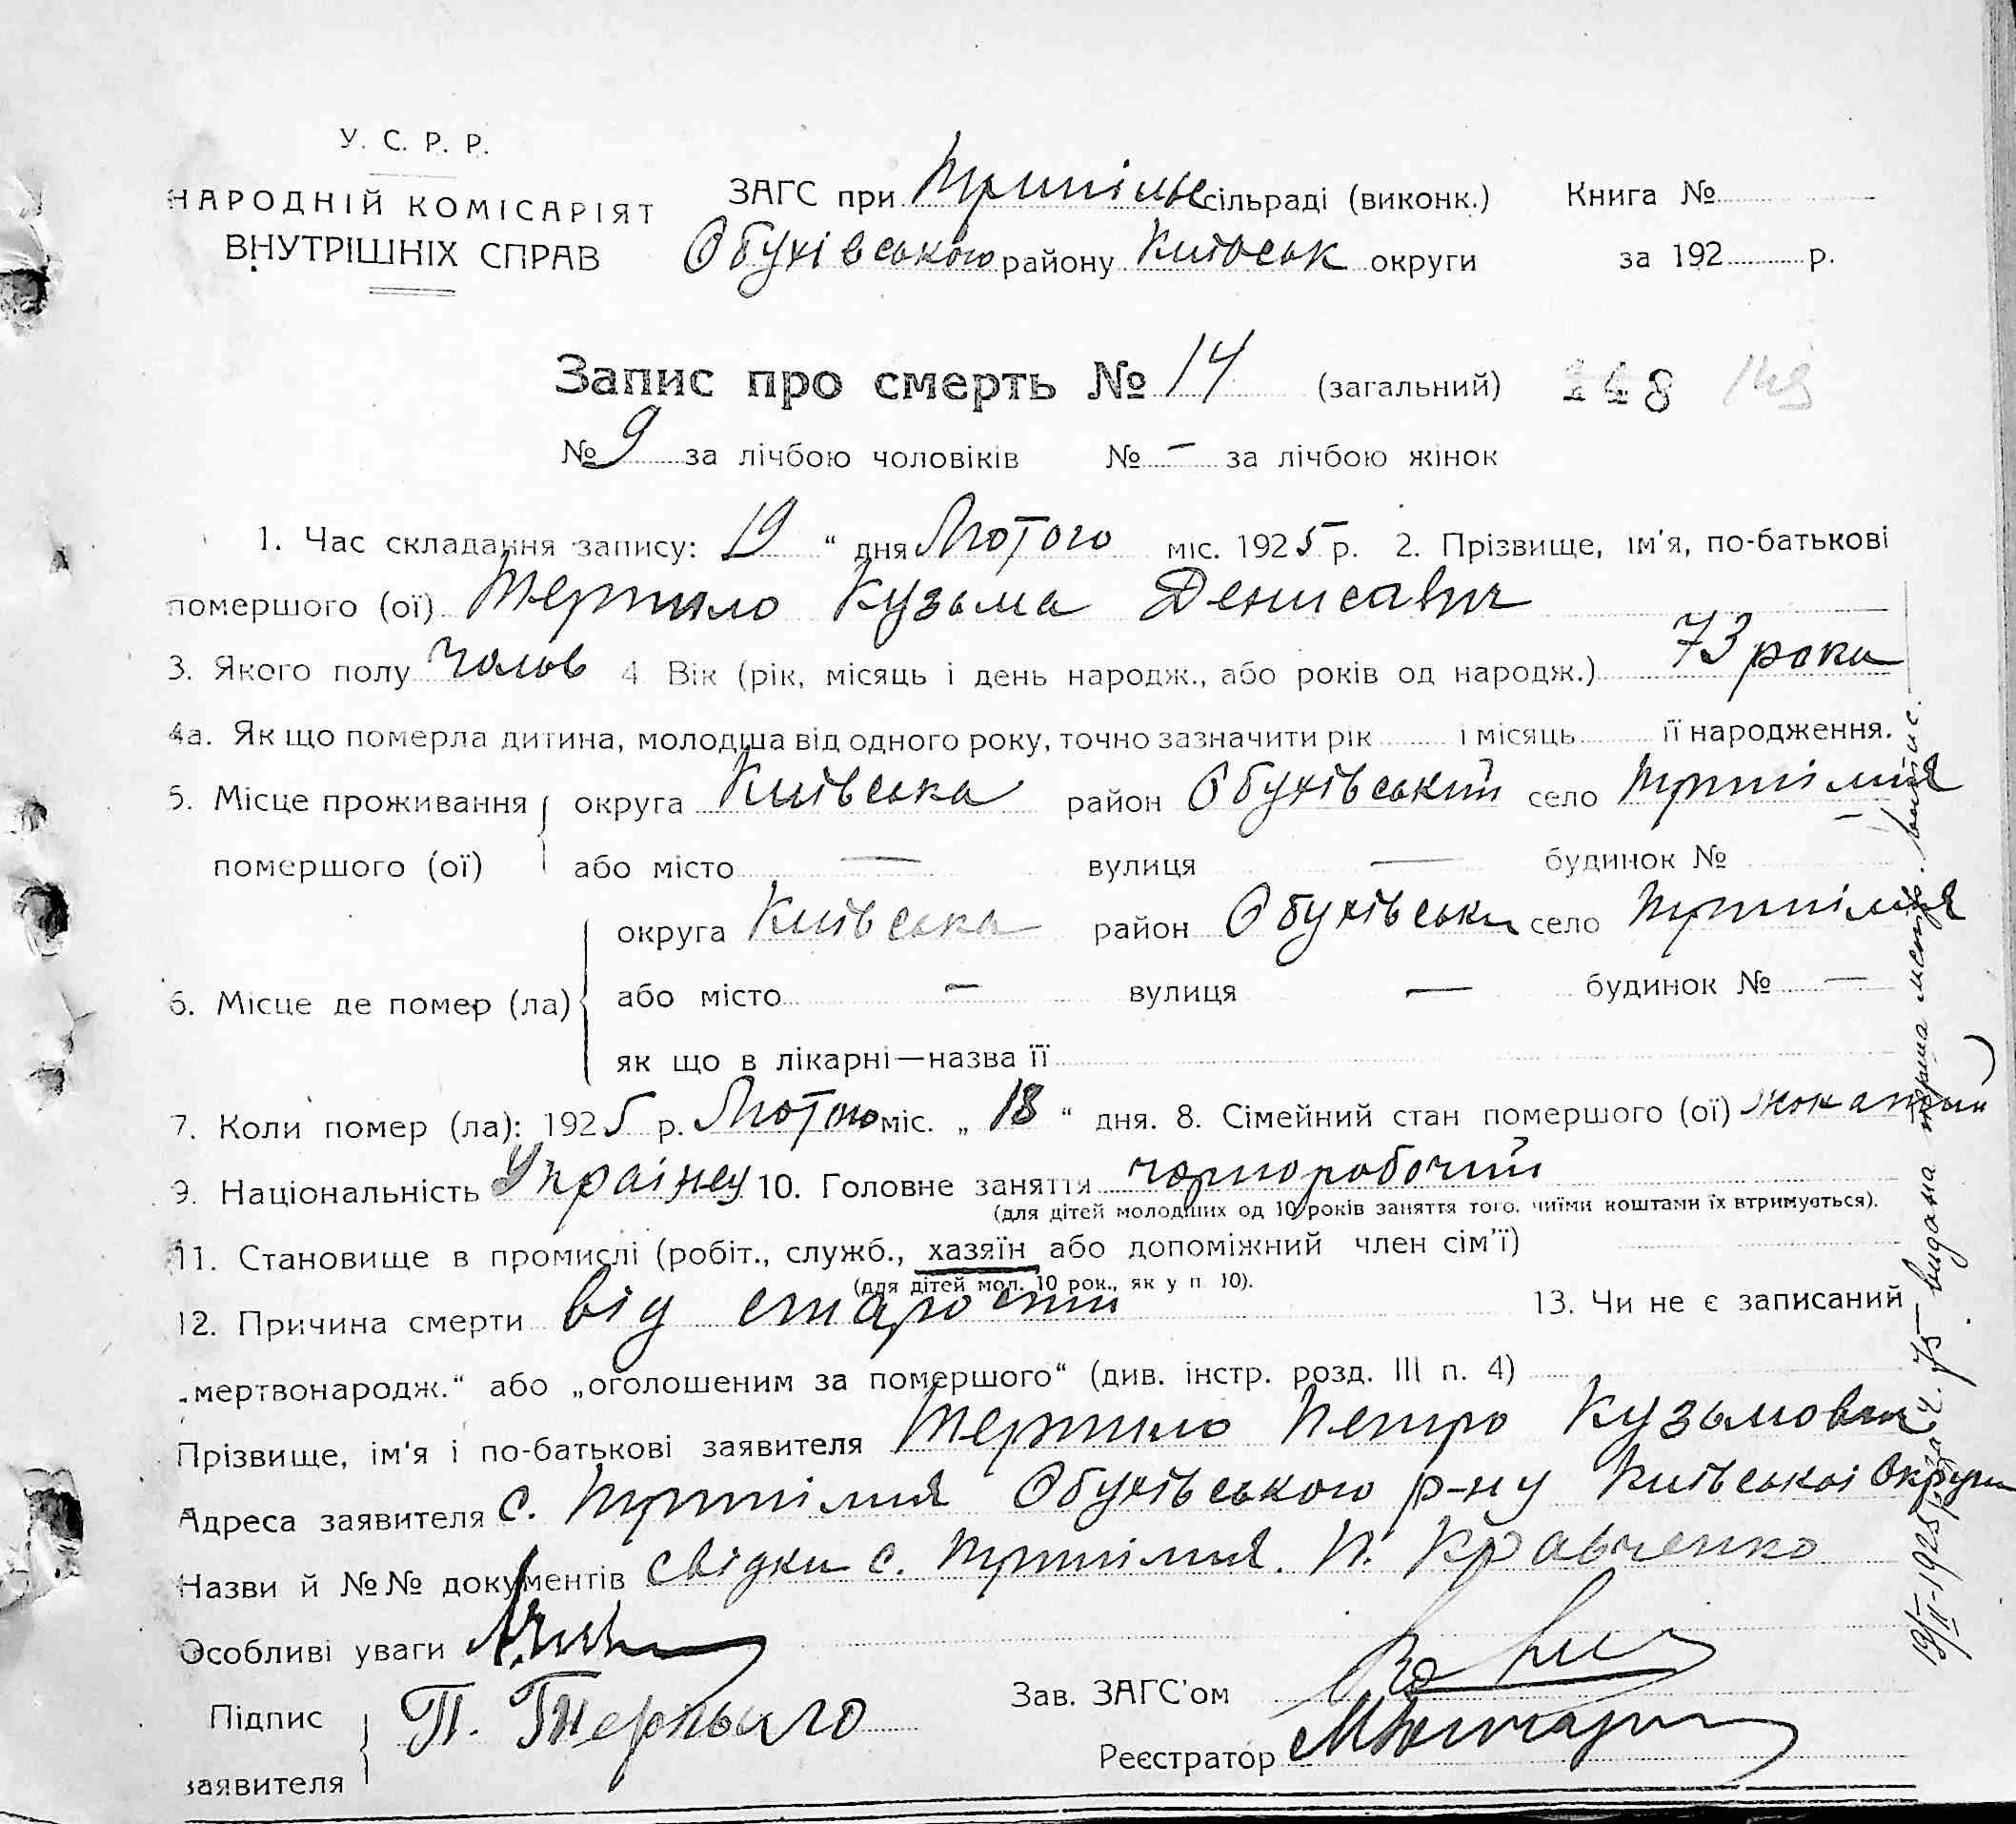 У. С. Р. Р.
НАРОДНІЙ КОМІСАРІЯТ
ВНУТРІШНІХ СПРАВ
ЗАГС при Трипільс сільраді (виконк.)
Обухівського району Київськ округи
Книга №
за 192 р.
Запис про смерть № 14 (загальний) 148
№ 9 за лічбою чоловіків № — за лічбою жінок
1. Час складання запису: 19 “ дня Лютого міс. 1925 р. 2. Прізвище, ім'я, по-батькові
помершого (ої) Терпило Кузьма Денисавич
3. Якого полу Чолов 4 Вік (рік, місяць і день народж., або років од народж.) 73 роки
4а. Як що померла дитина, молодша від одного року, точно зазначити рік і місяць її народження.
5. Місце проживання округа Київська район Обухівський село Трипілля
помершого (ої) або місто — вулиця — будинок № —
округа Київська район Обухівськи село Трипілля
6. Місце де помер (ла) або місто — вулиця — будинок № —
як що в лікарні—назва її
7. Коли помер (ла): 1925 р. Лютого міс. „ 18 “ дня. 8. Сімейний стан помершого (ої) жонатый
9. Національність Українец 10. Головне заняття чорноробочий
(для дітей молодших од 10 років заняття того. чиїми коштами їх втримуються).
11. Становище в промислі (робіт., служб., хазяїн або допоміжний член сім'ї)
(для дітей мол. 10 рок., як у п 10).
12. Причина смерти від старости 13. Чи не є записаний
„мертвонародж.“ або „оголошеним за помершого“ (див. інстр. розд. III п. 4)
Прізвище, ім'я і по-батькові заявителя Терпило Петро Кузьмович
Адреса заявителя с. Трипілля Обухівського р-ну Київської Округи
Назви й №№ документів свідки с. Трипілля. П. Кравченко
Особливі уваги
Підпис
заявителя
П. Терпыло
Зав. ЗАГС'ом
Реєстратор
19/II-1925 видана перша метр. выпис.